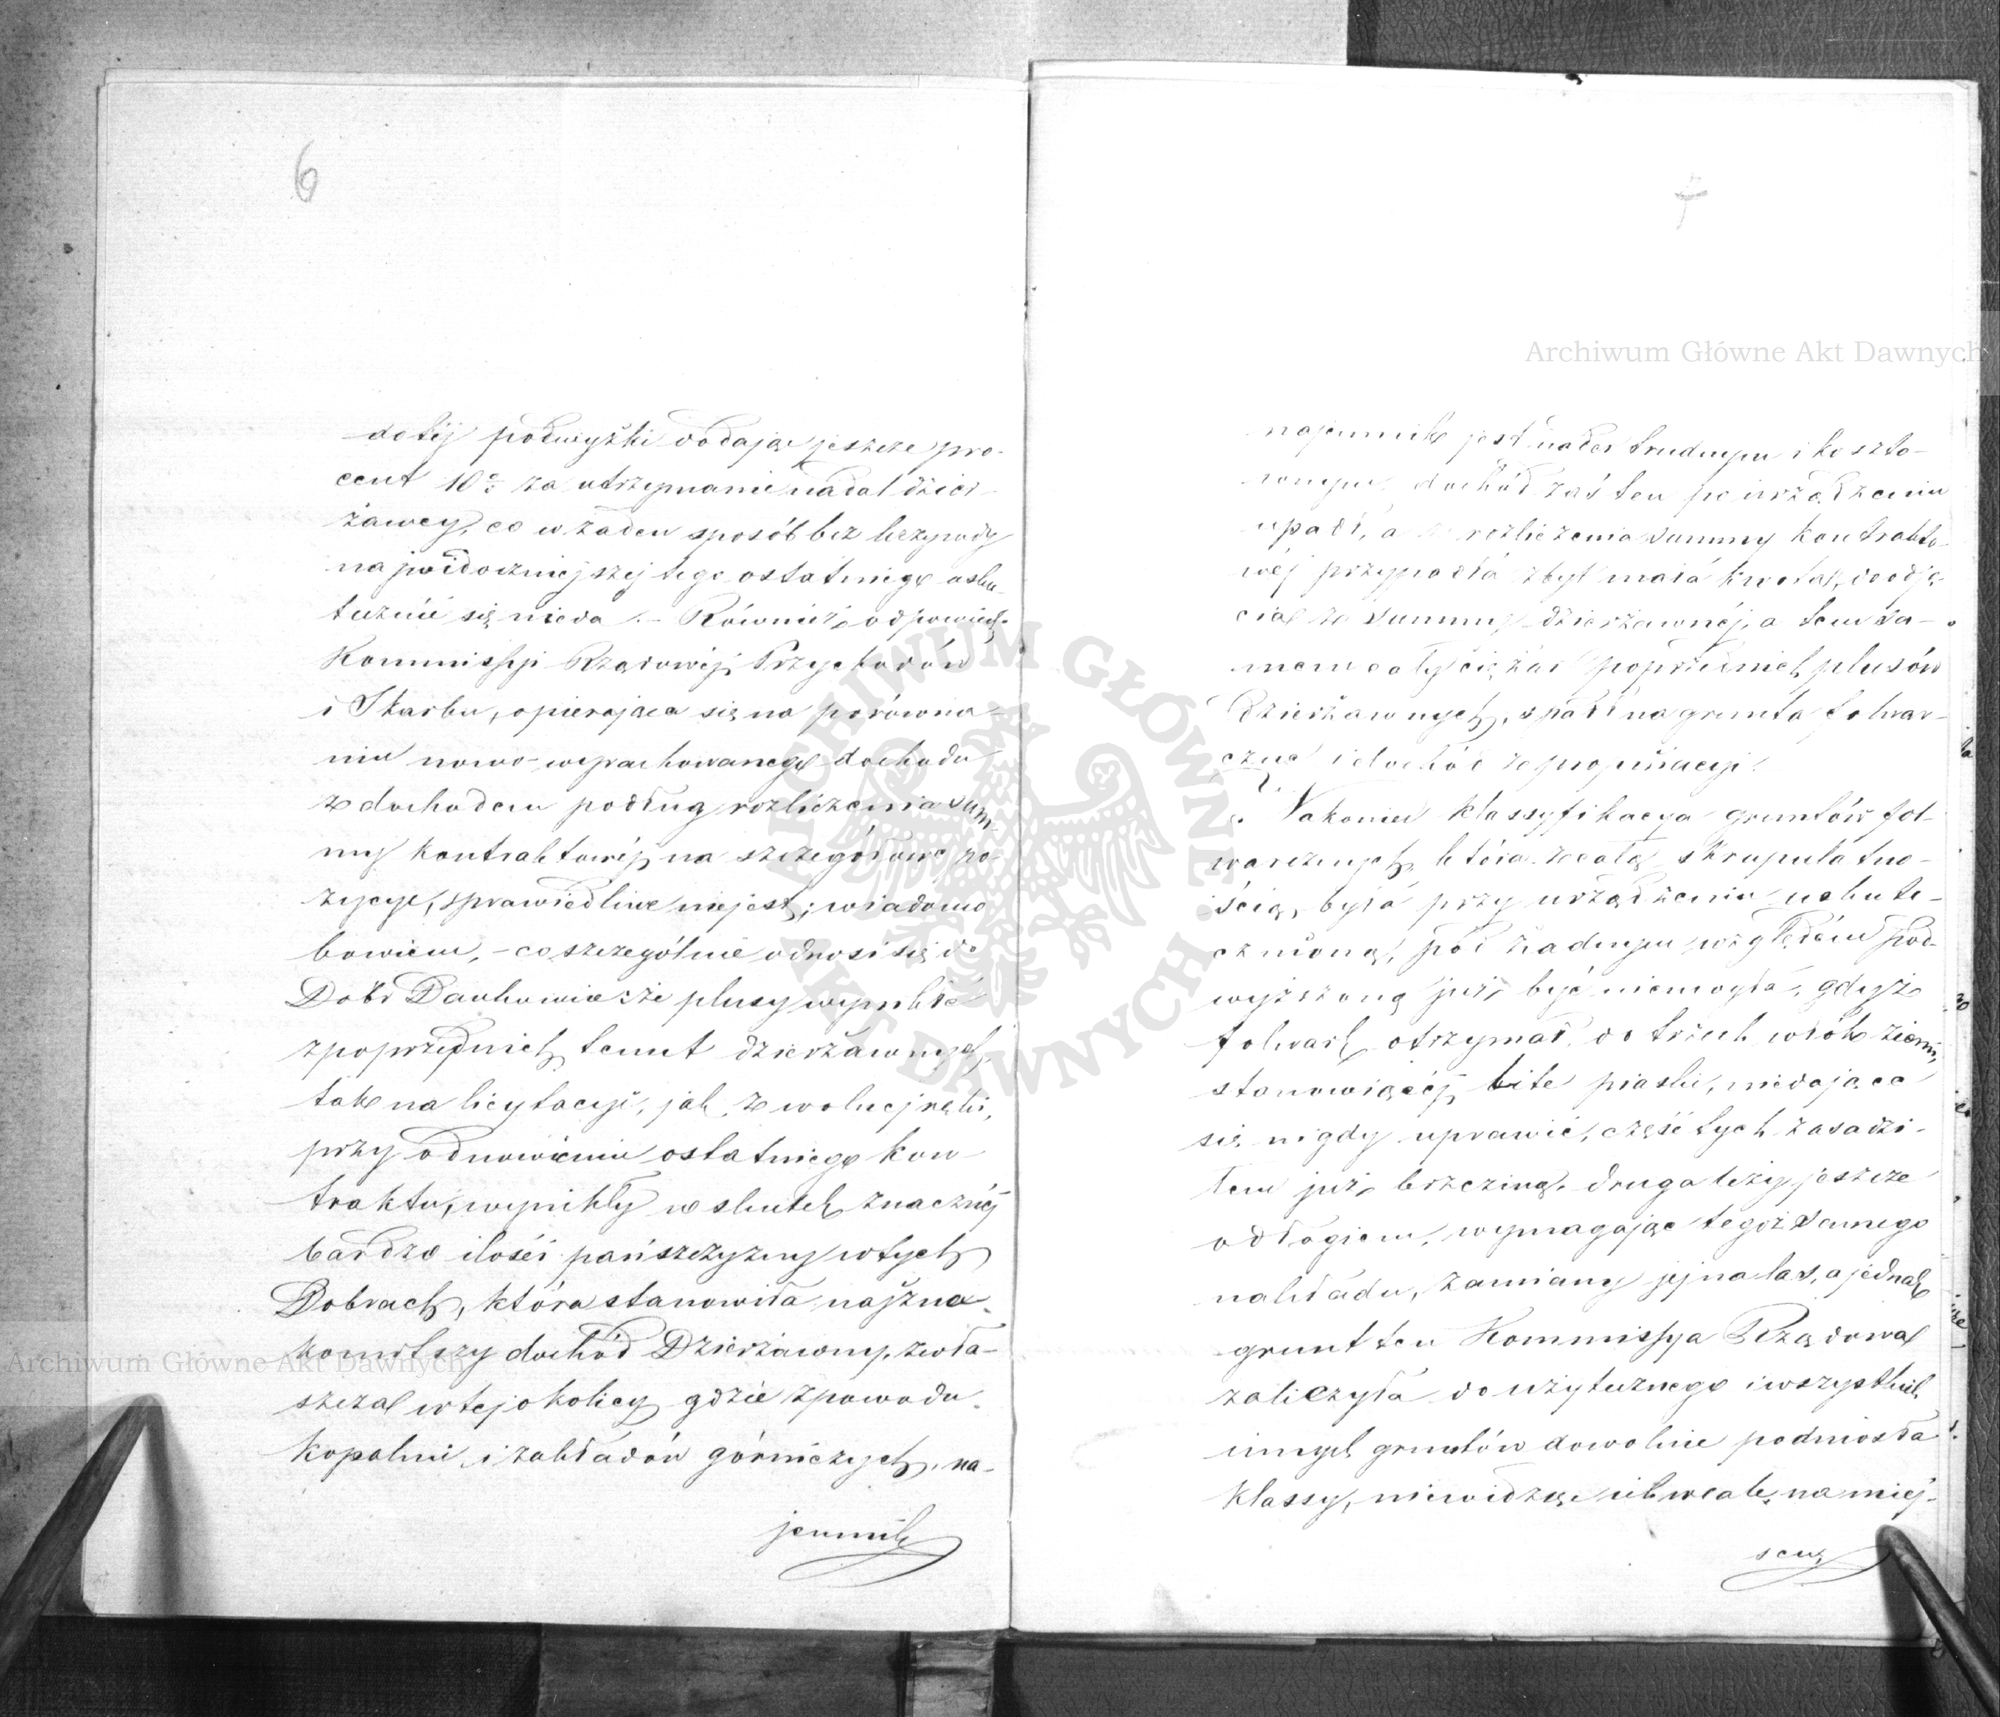 6
do téj podwyżki dodając jeszcze pro-
cent 10% za utrzymanie nadal dzier-
żawcy, co w żaden sposób bez krzywdy
najwidoczniejszej tego ostatniego usku-
tecznić się nieda. – Również odpowiedź
Kommissyi Rządowéj Przychodów
i Skarbu, opierająca się na porówna-
niu nowo-wyrachowanego dochodu
z dochodem podług rozliczenia sum-
my kontraktowéj na szczegółowe po-
zycye, sprawiedliwe niejest; wiadomo
bowiem, – co szczególnie odnosi się do
Dóbr że plusy wynikłe
z poprzednich tenut dzierżawnych,
tak na licytacyi, jak z wolnej ręki,
przy odnowieniu ostatniego kon-
traktu, wynikły w skutek znacznéj
bardzo ilości pańszczyzny w tych
Dobrach, która stanowiła najzna-
komitszy dochód Dzierżawny, zwła-
szcza w tej okolicy gdzie z powodu
kopalni i zakładów górniczych, na-
jemnik
7
najemnik jest nader trudnym i koszto-
wnym, dochód zaś ten po urządzeniu
upadł, a z rozliczenia summy kontrakto-
wéj przypadła zbyt mała kwota, do odję-
cia ze summy dzierżawnéj, a tem sa-
mem cały ciężar poprzednich plusów
Dzierżawnych, spadł na grunta folwar-
czne i dochód z propinacyi.
Nakoniec klassyfikacya gruntów fol-
warcznych, która z całą skrupulatno-
ścią była przy urządzeniu uskute-
cznioną, pod żadnym względem pod-
wyższoną już być niemogła, gdyż
folwark otrzymał do trzech włók ziemi,
stanowiącéj lite piaski, niedające
się nigdy uprawić, część tych zasadzi-
łem już brzeziną, druga leży jeszcze
odłogiem, wymagając tegoż samego
nakładu, zamiany jej na las, a jednak
grunt ten Kommissya Rządowa
zaliczyła do użytecznego i wszystkich
innych gruntów dowolnie podniosła
klassy, niewidząc ich wcale na miej-
scu,
Archiwum Główne Akt Dawnych
Archiwum Główne Akt Dawnych
ARCHIWUM GŁÓWNE AKT DAWNYCH